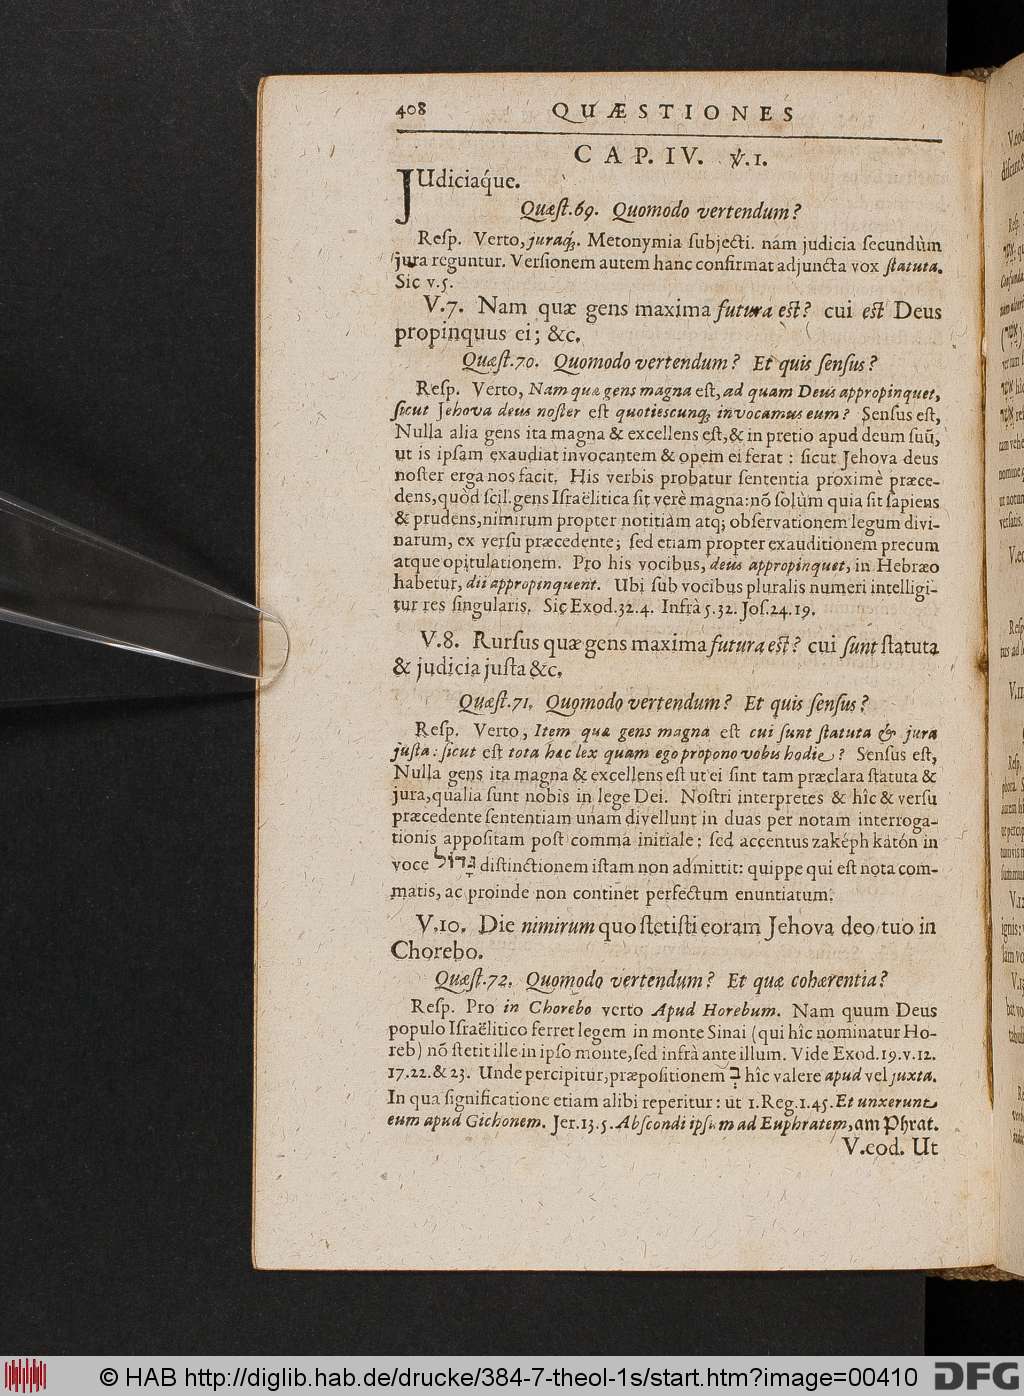 408 QUÆSTIONES
CAP. IV. ℣. 1.
JUdiciaq́ue.
Quæſt. 69. Quomodo vertendum?
Reſp. Verto, juraq́;. Metonymia ſubjecti. nam judicia ſecundùm
jura reguntur. Verſionem autem hanc confirmat adjuncta vox ſtatuta.
Sic v. 5.
V. 7. Nam quæ gens maxima futura eſt? cui eſt Deus
propinquus ei; &c.
Quæſt. 70. Quomodo vertendum? Et quis ſenſus?
Reſp. Verto, Nam quæ gens magna eſt, ad quam Deus appropinquet,
ſicut Jehova deus noſter eſt quotiescunq; invocamus eum? Senſus eſt,
Nulla alia gens ita magna & excellens eſt, & in pretio apud deum ſuũ,
ut is ipſam exaudiat invocantem & opem ei ferat: ſicut Jehova deus
noſter erga nos facit. His verbis probatur ſententia proximè præce-
dens, quòd ſcil. gens Iſraëlitica ſit verè magna: nõ ſolùm quia ſit ſapiens
& prudens, nimirum propter notitiam atq; obſervationem legum divi-
narum, ex verſu præcedente; ſed etiam propter exauditionem precum
atque opitulationem. Pro his vocibus, deus appropinquet, in Hebræo
habetur, dii appropinquent. Ubi ſub vocibus pluralis numeri intelligi-
tur res ſingularis. Sic Exod. 32. 4. Infrà 5. 32. Joſ. 24. 19.
V. 8. Rurſus quæ gens maxima futura eſt? cui ſunt ſtatuta
& judicia juſta &c.
Quæſt. 71. Quomodo vertendum? Et quis ſenſus?
Reſp. Verto, Item quæ gens magna eſt cui ſunt ſtatuta & jura
juſta: ſicut eſt tota hæc lex quam ego propono vobis hodie? Senſus eſt,
Nulla gens ita magna & excellens eſt ut ei ſint tam præclara ſtatuta &
jura, qualia ſunt nobis in lege Dei. Noſtri interpretes & hîc & verſu
præcedente ſententiam unam divellunt in duas per notam interroga-
tionis appoſitam poſt comma initiale: ſed accentus zaképh katón in
voce גָּדוֹל diſtinctionem iſtam non admittit: quippe qui eſt nota com-
matis, ac proinde non continet perfectum enuntiatum.
V. 10. Die nimirum quo ſtetiſti coram Jehova deo tuo in
Chorebo.
Quæſt. 72. Quomodo vertendum? Et quæ cohærentia?
Reſp. Pro in Chorebo verto Apud Horebum. Nam quum Deus
populo Iſraëlitico ferret legem in monte Sinai (qui hîc nominatur Ho-
reb) nõ ſtetit ille in ipſo monte, ſed infrà ante illum. Vide Exod. 19. v. 12.
17. 22. & 23. Unde percipitur, præpoſitionem בְּ hîc valere apud vel juxta.
In qua ſignificatione etiam alibi reperitur: ut 1. Reg. 1. 45. Et unxerunt
eum apud Gichonem. Jer. 13. 5. Abſcondi ipſum ad Euphratem, am Phrat.
V. eod. Ut
© HAB http://diglib.hab.de/drucke/384-7-theol-1s/start.htm?image=00410
DFG